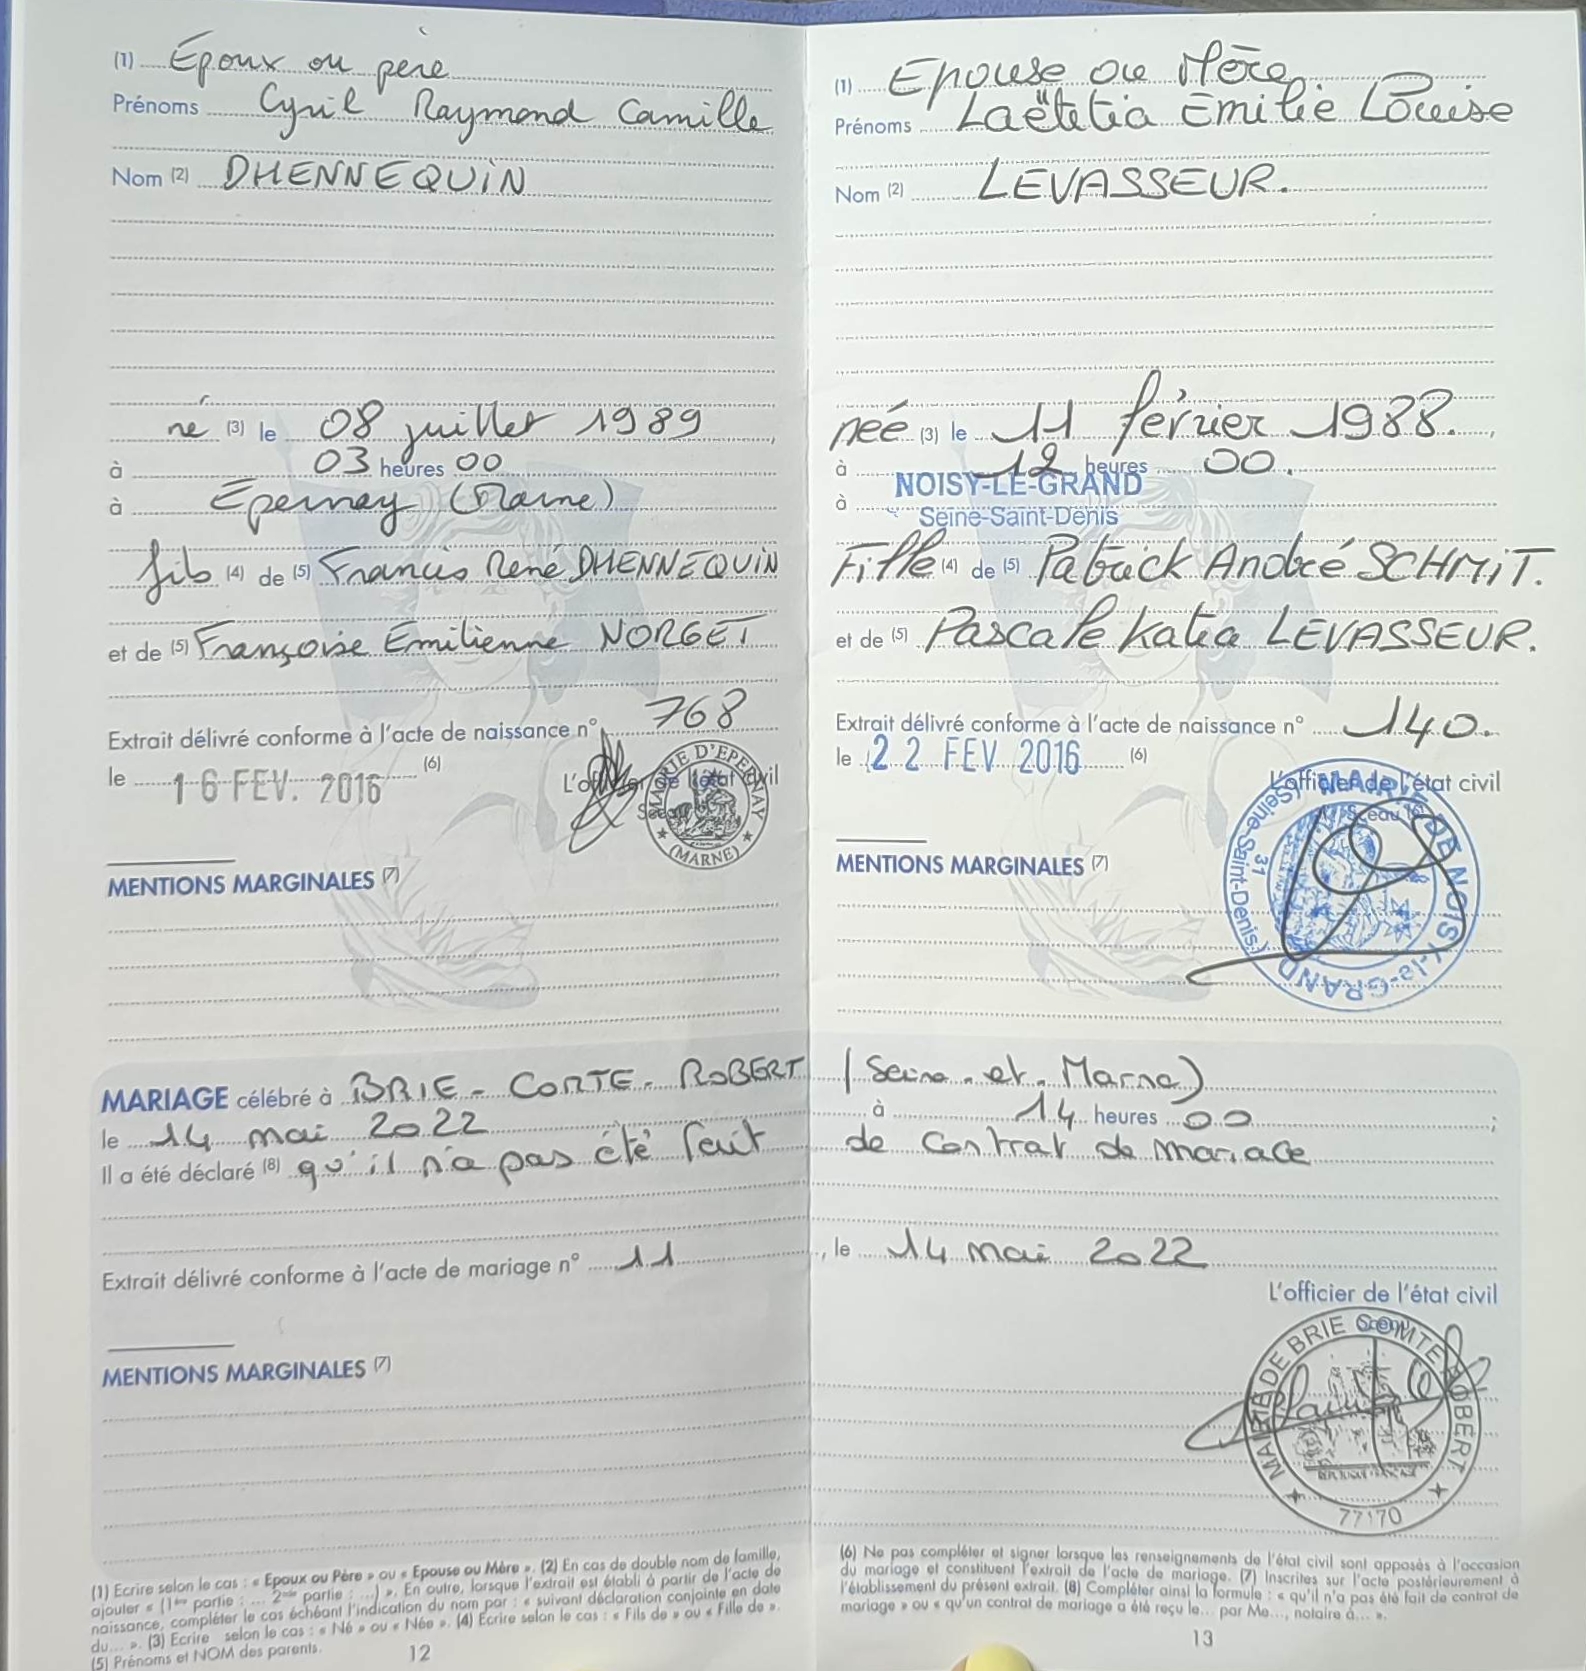 (1) Epoux ou père
Prénoms Cyril Raymond Camille
Nom (2) DHENNEQUIN
né (3) le 08 juillet 1989,
à 03 heures 00
à Epernay (Marne)
fils (4) de (5) Francis René DHENNEQUIN
et de (5) Françoise Emilienne NORGET
Extrait délivré conforme à l'acte de naissance n° 768
le 16 FEV. 2016 (6)
L'officier de l'état civil
Sceau
MAIRIE D'EPERNAY
(MARNE)
MENTIONS MARGINALES (7)
(1) Epouse ou Mère
Prénoms Laëtitia Emilie Louise
Nom (2) LEVASSEUR.
née (3) le 11 février 1988.,
à 12 heures 00.
à NOISY-LE-GRAND
Seine-Saint-Denis
Fille (4) de (5) Patrick André SCHMIT.
et de (5) Pascale Katia LEVASSEUR.
Extrait délivré conforme à l'acte de naissance n° 140.
le 22 FEV 2016 (6)
L'officier de l'état civil
Sceau
MAIRIE DE NOISY-le-GRAND
(Seine-Saint-Denis)
31
MENTIONS MARGINALES (7)
MARIAGE célébré à BRIE-COMTE-ROBERT (Seine-et-Marne)
le 14 mai 2022 à 14 heures 00;
Il a été déclaré (8) qu'il n'a pas été fait de contrat de mariage
Extrait délivré conforme à l'acte de mariage n° 11, le 14 mai 2022
L'officier de l'état civil
Sceau
MAIRIE DE BRIE COMTE ROBERT
REPUBLIQUE FRANCAISE
77170
MENTIONS MARGINALES (7)
(1) Ecrire selon le cas : « Epoux ou Père » ou « Epouse ou Mère ». (2) En cas de double nom de famille,
ajouter « (1ère partie : ... 2nde partie : ...) ». En outre, lorsque l'extrait est établi à partir de l'acte de
naissance, compléter le cas échéant l'indication du nom par : « suivant déclaration conjointe en date
du... ». (3) Ecrire selon le cas : « Né » ou « Née ». (4) Ecrire selon le cas : « Fils de » ou « Fille de ».
(5) Prénoms et NOM des parents.
12
(6) Ne pas compléter et signer lorsque les renseignements de l'état civil sont apposés à l'occasion
du mariage et constituent l'extrait de l'acte de mariage. (7) Inscrites sur l'acte postérieurement à
l'établissement du présent extrait. (8) Compléter ainsi la formule : « qu'il n'a pas été fait de contrat de
mariage » ou « qu'un contrat de mariage a été reçu le... par Me..., notaire à... ».
13